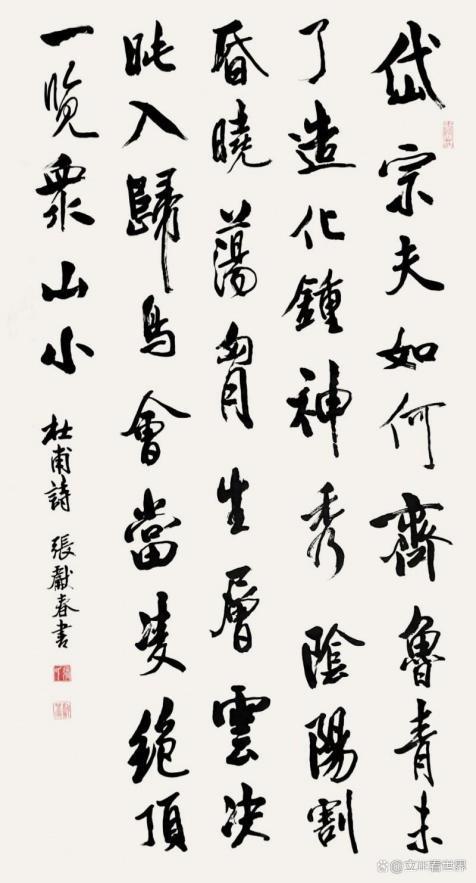 岱宗夫如何齊魯青未
了造化鍾神秀陰陽割
昏曉蕩胷生層雲決
眥入歸鳥會當凌絕頂
一覽衆山小
杜甫詩 張獻春書